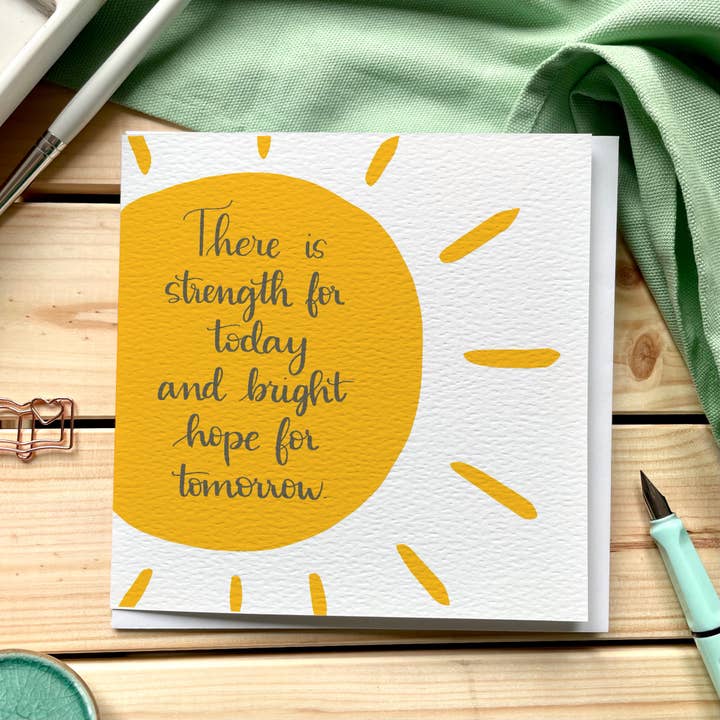 There is
strength for
today
and bright
hope for
tomorrow.